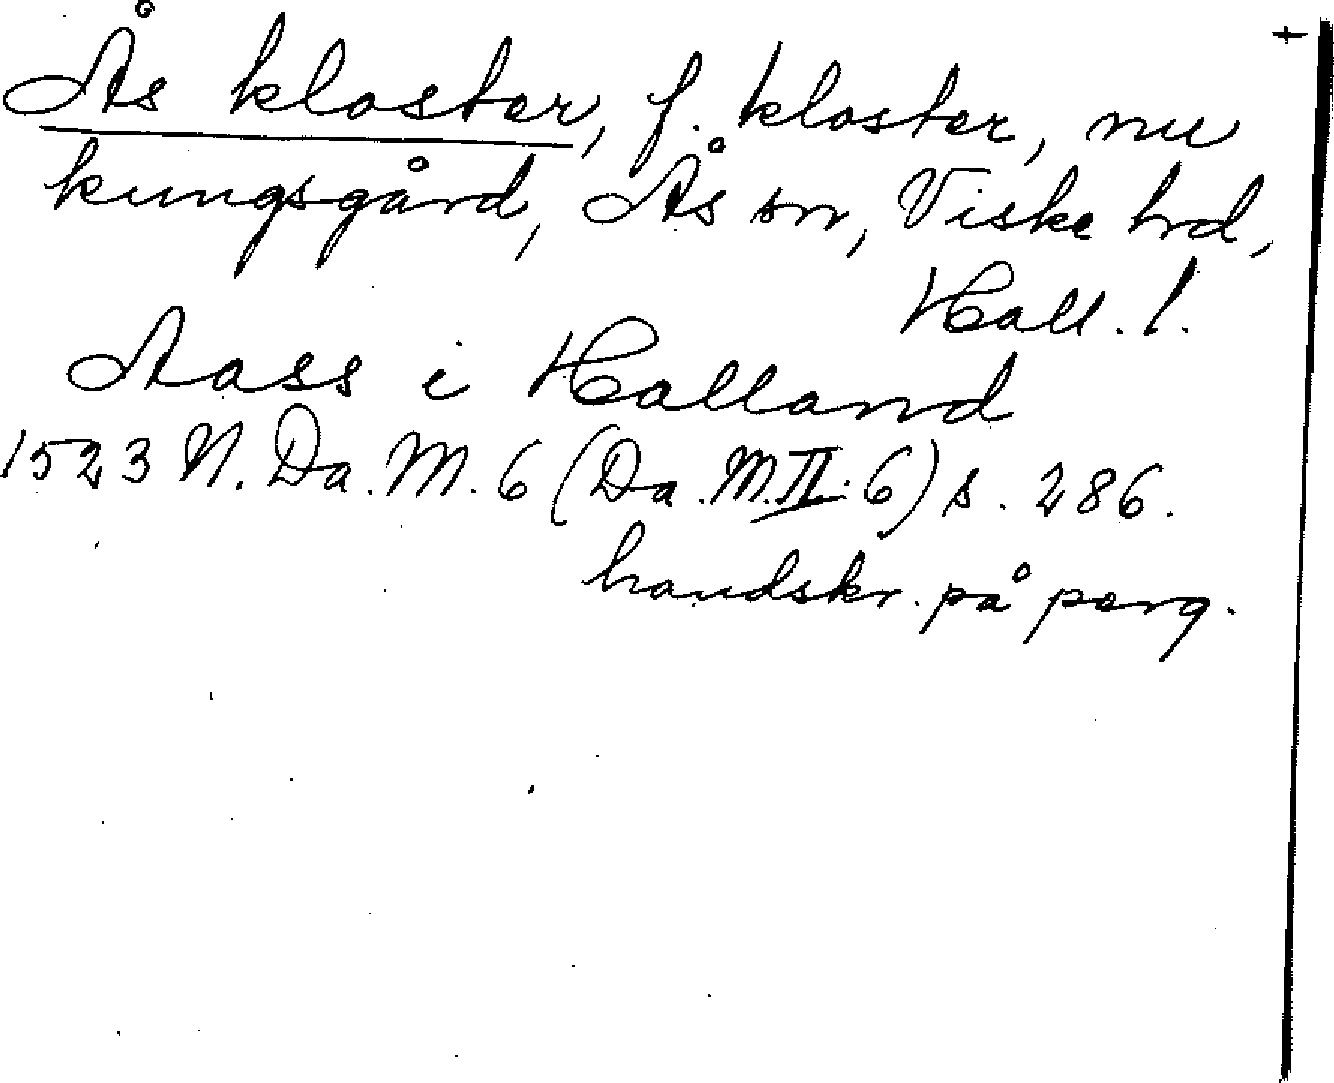 Ås kloster, f. kloster, nu
kungsgård, Ås sn, Viske hrd,
Hall. l.
Aass i Halland
1523 N. Da. M. 6 (Da. M. II. 6) s. 286.
handskr. på perg.